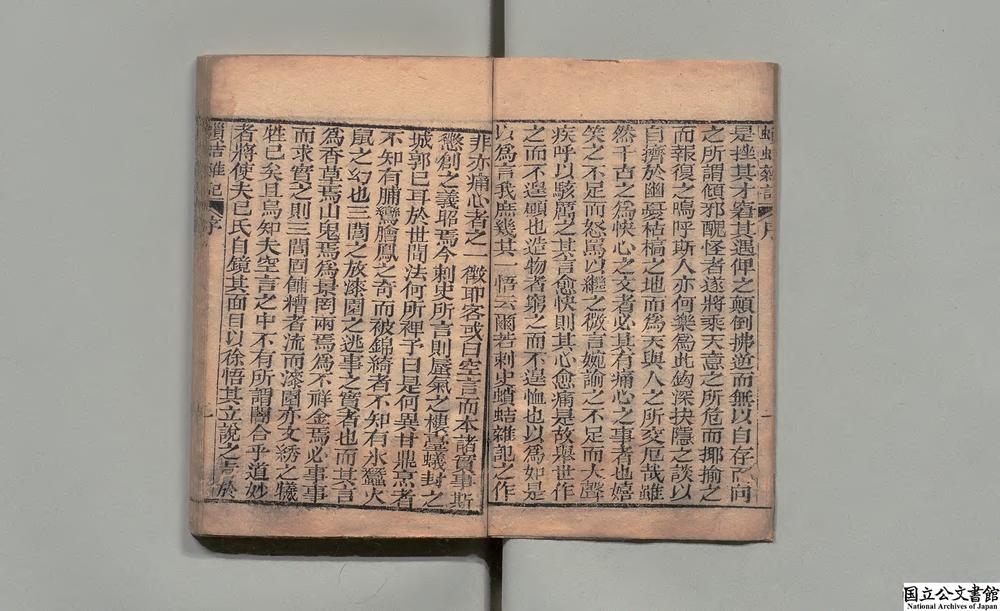 蟫蛣雜記 序
是挫其才窘其遇俾之顛倒拂逆而無以自存而向
之所謂傾邪醜怪者遂將乘天意之所危而揶揄之
而報復之嗚呼斯人亦何樂為此鈎深抉隱之談以
自擠於幽憂枯槁之地而為天與人之所交厄哉雖
然千古之為快心之文者必其有痛心之事者也嬉
笑之不足而怒罵以繼之微言婉諭之不足而大聲
疾呼以駭厲之其言愈快則其心愈痛是故舉世作
之而不遑顧也造物者窮之而不遑恤也以為如是
以為言我庶幾其一悟云爾若刺史蟥蛣雜記之作
非亦痛心者之一徵耶客或曰空言而本諸實事斯
懲創之義昭焉今刺史所言則蜃氣之樓臺蟻封之
城郭已耳於世間法何所裨予曰是何異甘鼎烹者
不知有脯鸞膾鳳之奇而被錦綺者不知有氷蠶火
鼠之幻也三閭之放漆園之逃事之實者也而其言
為香草焉山鬼焉為景罔兩焉為不祥金焉必事事
而求實之則三閭固餔糟者流而漆園亦文綉之犧
牲已矣且烏知夫空言之中不有所謂闇合乎道妙
者將使夫已氏自鏡其面目以徐悟其立說之旨於
蟥蛣雜記 序
国立公文書館
National Archives of Japan